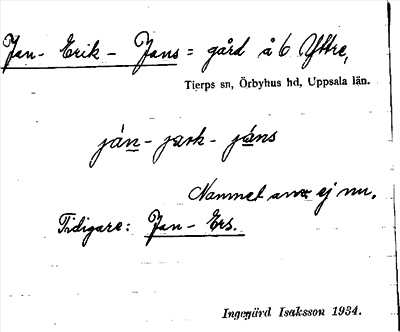 Jan-Erik-Jans = gård å 6 Yttre,
Tierps sn, Örbyhus hd, Uppsala län.
ján- jark- jáns
Namnet anv. ej nu.
Tidigare: Jan-Ers.
Ingegärd Isaksson 1934.